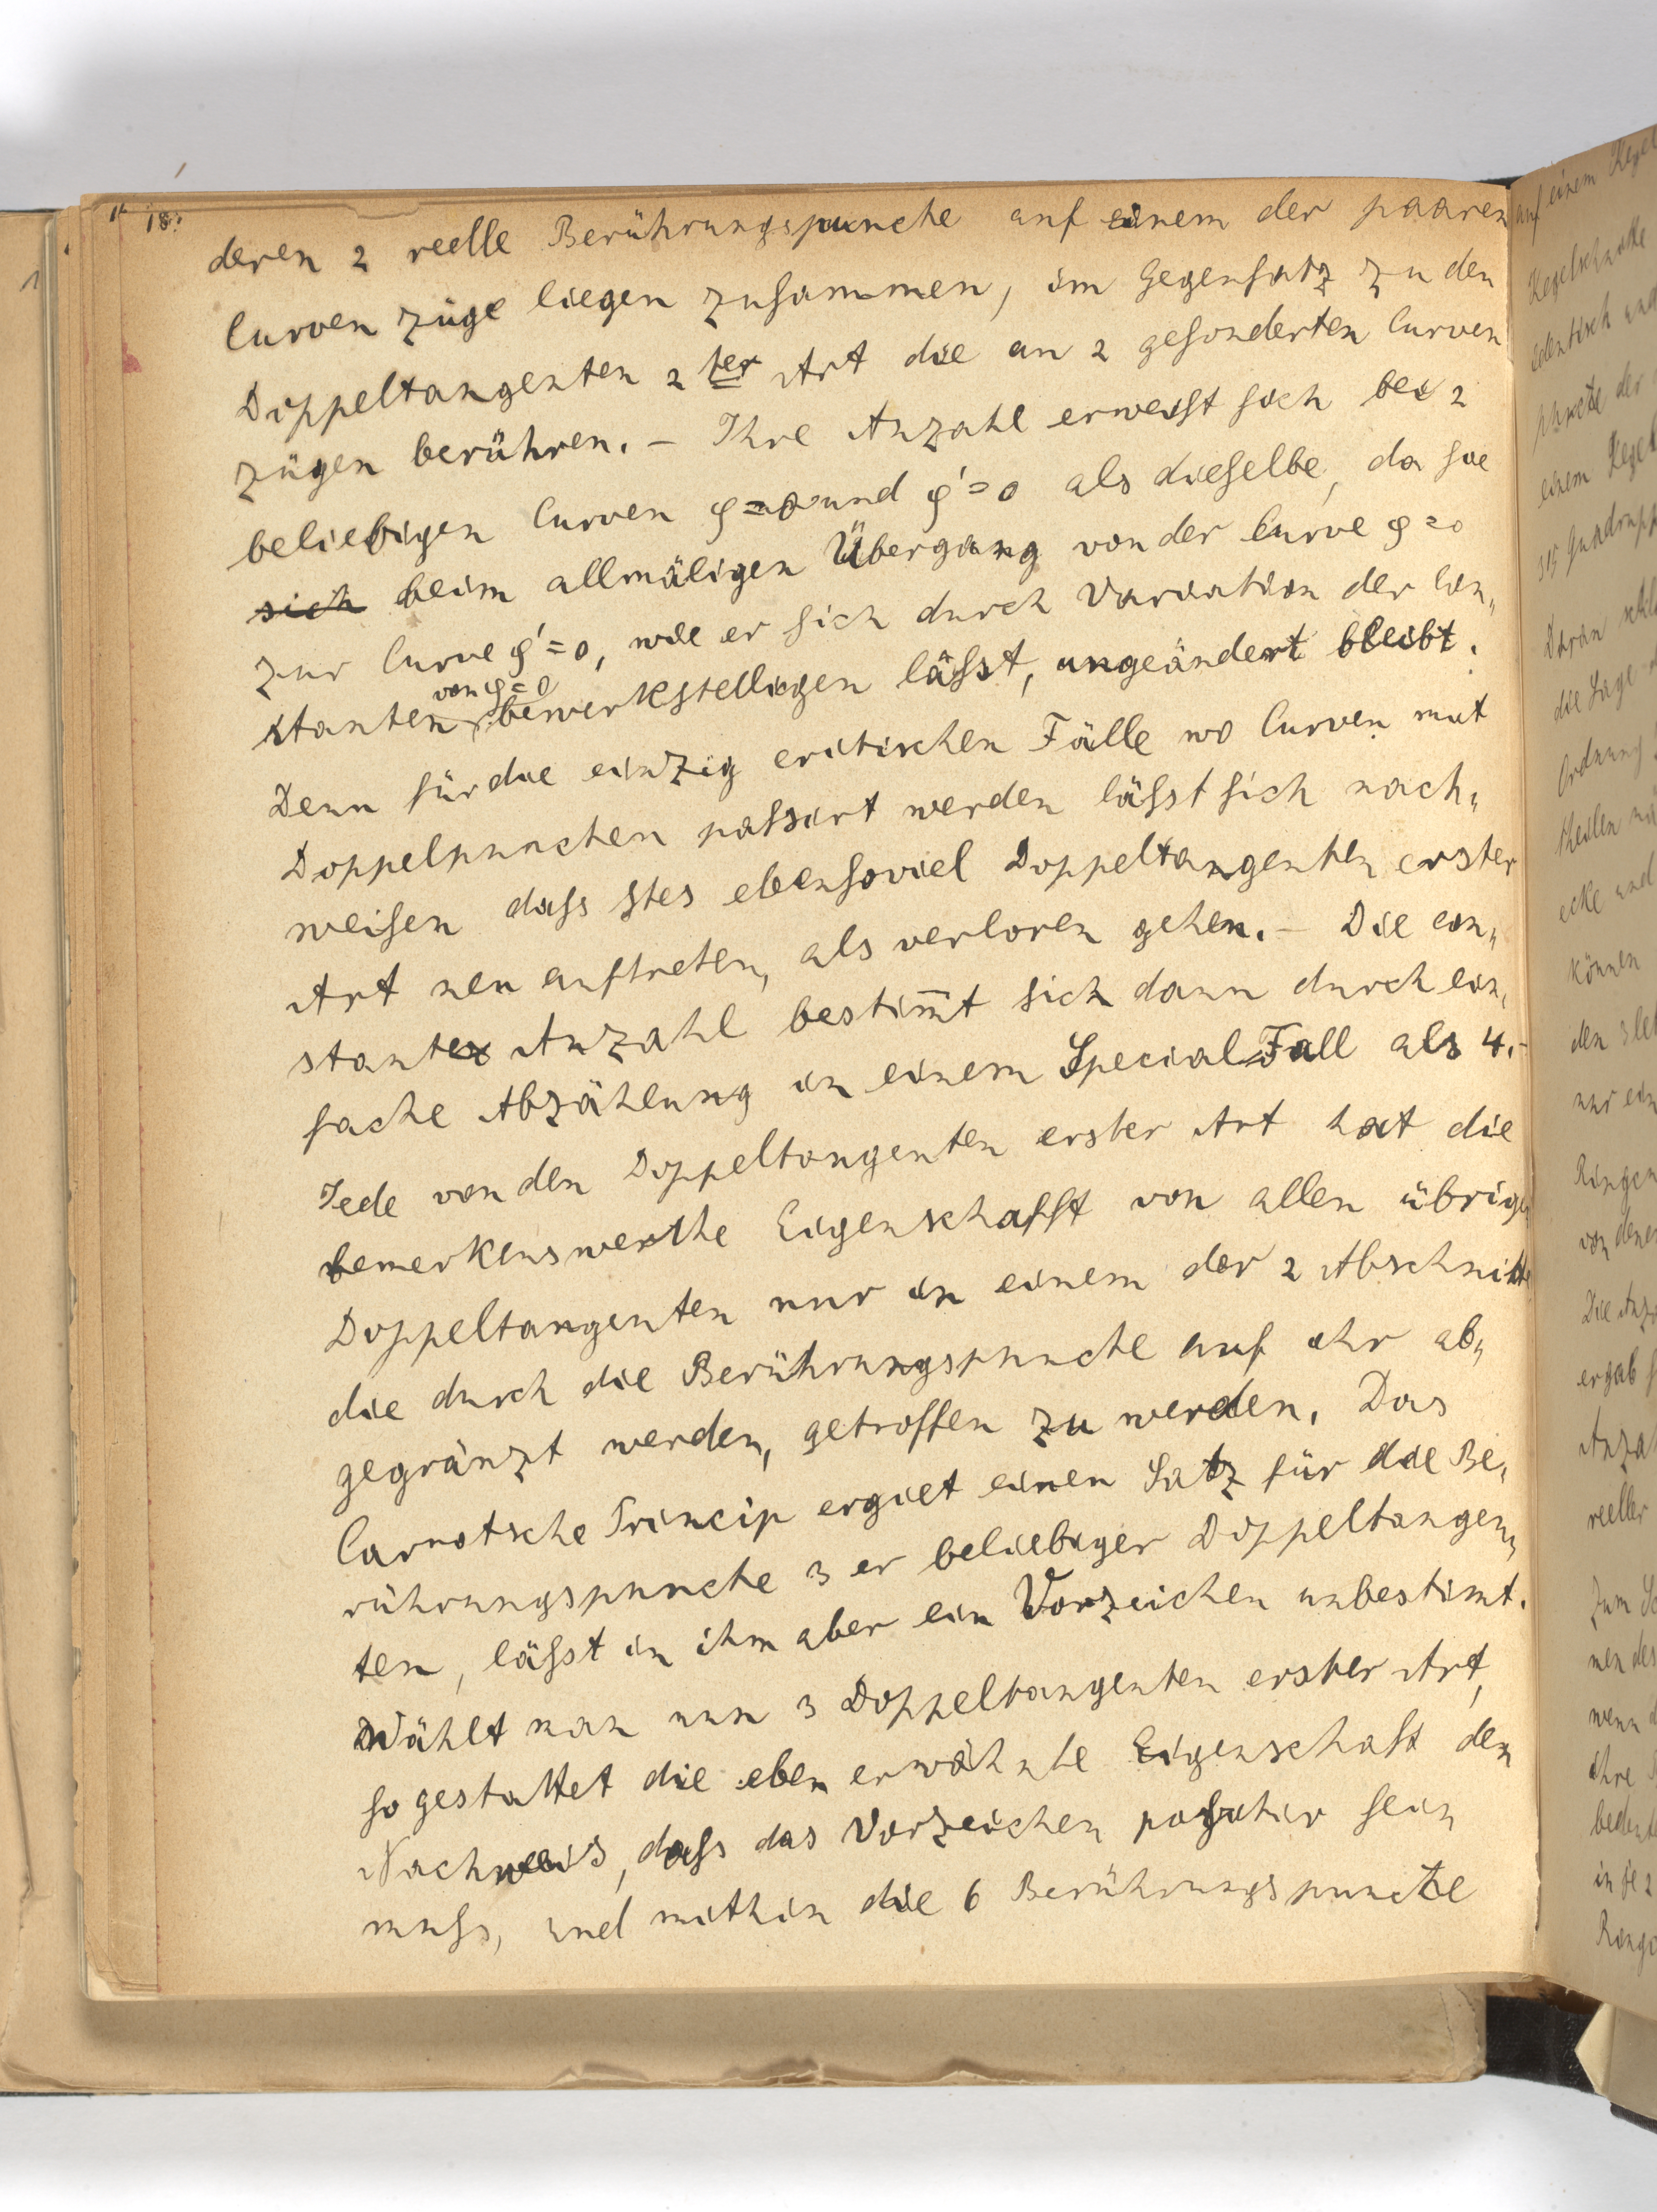 18.
deren 2 reelle Berührungspuncte auf einem der paaren
Curven züge liegen zusammen, im Gegensatz zu den
Doppeltangenten 2ter Art die an 2 gesonderten Curven
zügen berühren. – Ihre Anzahl erweist sich bei 2
beliebigen Curven φ=0 und φ'=0 als dieselbe, da sie
sich beim allmäligen Übergang von der Curve φ=0
zur Curve φ'=0, wie er sich durch Variation der Con„
von φ=0
stanten bewerkstelligen lässt, ungeändert bleibt.
Denn für die einzig critischen Fälle wo Curven mit
Doppelpuncten passirt werden lässt sich nach„
weisen dass stes ebensoviel Doppeltangenten erster
Art neu auftreten, als verloren gehen. – Die con„
stante Anzahl bestim̄t sich dann durch ein„
fache Abzählung in einem Special-Fall als 4. –
Jede von den Doppeltangenten erster Art hat die
bemerkenswerthe Eigenschafft von allen übrigen
Doppeltangenten nur in einem der 2 Abschnitte
die durch die Berührungspuncte auf ihr ab„
gegränzt werden, getroffen zu werden. Das
Carnotsche Princip ergiet einen Satz für die Be„
rührungspuncte 3 er beliebiger Doppeltangen„
ten, lässt in ihm aber ein Vorzeichen unbestimt.
Wählt man nun 3 Doppeltangenten erster Art,
so gestattet die eben erwähnte Eigenschaft den
Nachweis, dass das Vorzeichen positiv sein
muss, und mithin die 6 Berührungspuncte
auf einem Kegel
Kegelschnitte
identisch und
puncte der
einem Kegel
315 Quadrupel
die Lage
Ordnung
können
nur ein
von denen
ergab
reeller
zum
wenn
ihre
in je 2